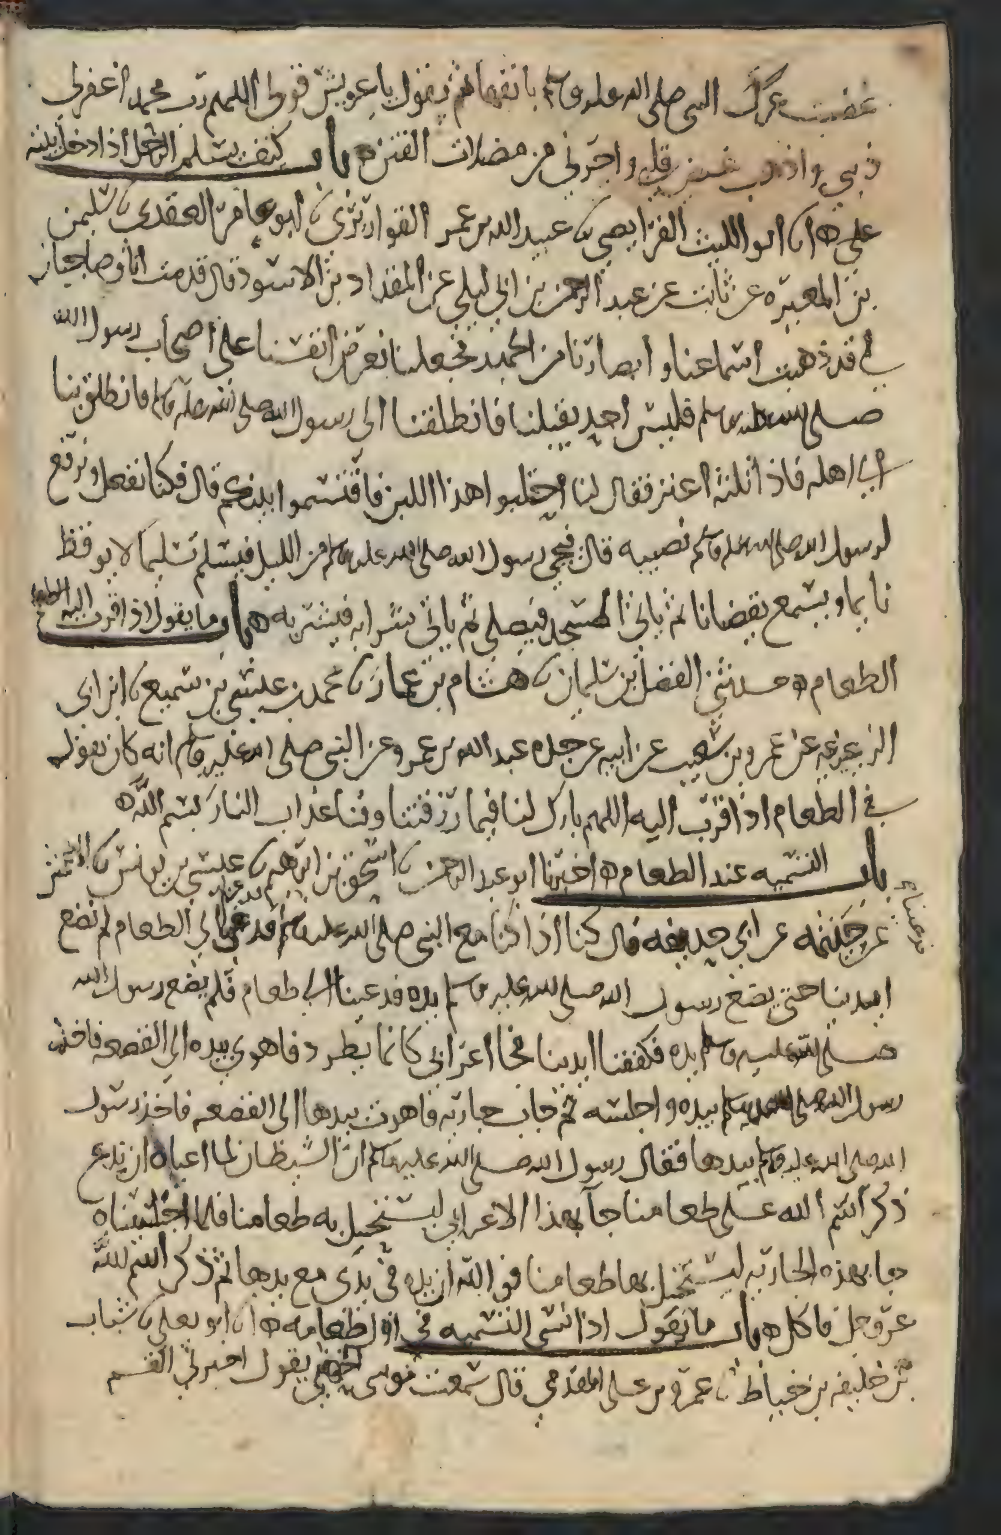 غضبت عرك النبي صلى الله عليه وسلم بانفها ثم يقول يا عويش قولي اللهم رب محمد اغفر لي
ذنبي واذهب غيظ قلبي واجرني من مضلات الفتن ه باب كيف يسلم الرجل اذا دخل بيته
على ه انا ابو الليث الفرايضي نا عبيد الله بن عمر القواريري نا ابو عامر العقدي نا سليمن
بن المغيره عن ثابت عن عبد الرحمن بن ابي ليلى عن المقداد بن الاسود قال قدمت انا وصاحبان
لي قد ذهبت اسماعنا وابصارنا من الجهد فجعلنا نعرض انفسنا على اصحاب رسول الله
صلى الله عليه وسلم فليس احد يقبلنا فانطلقنا الى رسول الله صلى الله عليه وسلم فانطلق بنا
الى اهله فاذا ثلثه اعنز فقال لنا احتلبوا هذا اللبن فاقتسموا بينكم قال فكنا نفعل ونرفع
لرسول الله صلى الله عليه وسلم نصيبه قال فيجي رسول الله صلى الله عليه وسلم من الليل فيسلم تسليما لا يوقظ
نايما ويسمع يقضانا ثم ياتي المسجد فيصلي ثم ياتي شرابه فيشربه ه باب ما يقول اذا قرب اليه الطعام
الطعام ه حدثني الفضل بن سليمان نا هشام بن عمار نا محمد بن عيسى بن سميع نا ابن ابي
الزعيزعه عن عمرو بن شعيب عن ابيه عن جده عبد الله بن عمرو عن النبي صلى الله عليه وسلم انه كان يقول
في الطعام اذا قرب اليه اللهم بارك لنا فيما رزقتنا وقنا عذاب النار بسم الله ه
باب التسميه عند الطعام ه اخبرنا ابو عبد الرحمن نا اسحق بن ابرهيم نا عيسى بن يونس نا الاعمش
عن خيثمه عن ابي حذيفه قال كنا اذا كنا مع النبي صلى الله عليه وسلم فدعي الى الطعام لم نضع
فدعينا
ايدينا حتى يضع رسول الله صلى الله عليه وسلم يده فدعينا الى طعام فلم يضع رسول الله
صلى الله عليه وسلم يده فكففنا ايدينا فجا اعرابي كانما يطرد فاهوى بيده الى القصعه فاخذ
رسول الله صلى الله عليه وسلم بيده واجلسه ثم جات جاريه فاهوت بيدها الى القصعه فاخذ رسول
الله صلى الله عليه وسلم بيدها فقال رسول الله صلى الله عليه وسلم ان الشيطان لما اعياه ان ندع
ذكر اسم الله على طعامنا جا بهذا الاعرابي ليستحل به طعامنا فلما اجلسناه
جا بهذه الجاريه ليستحل بها طعامنا فوالله ان يده في يدي مع يدها ثم ذكر اسم الله
عز وجل فاكل ه باب ما يقول اذا نسي التسميه في اول طعامه ه انا ابو يعلى نا شباب
بن خليفه بن خياط نا عمرو بن علي المقدمي قال سمعت موسى الجهني يقول اخبرني القسم